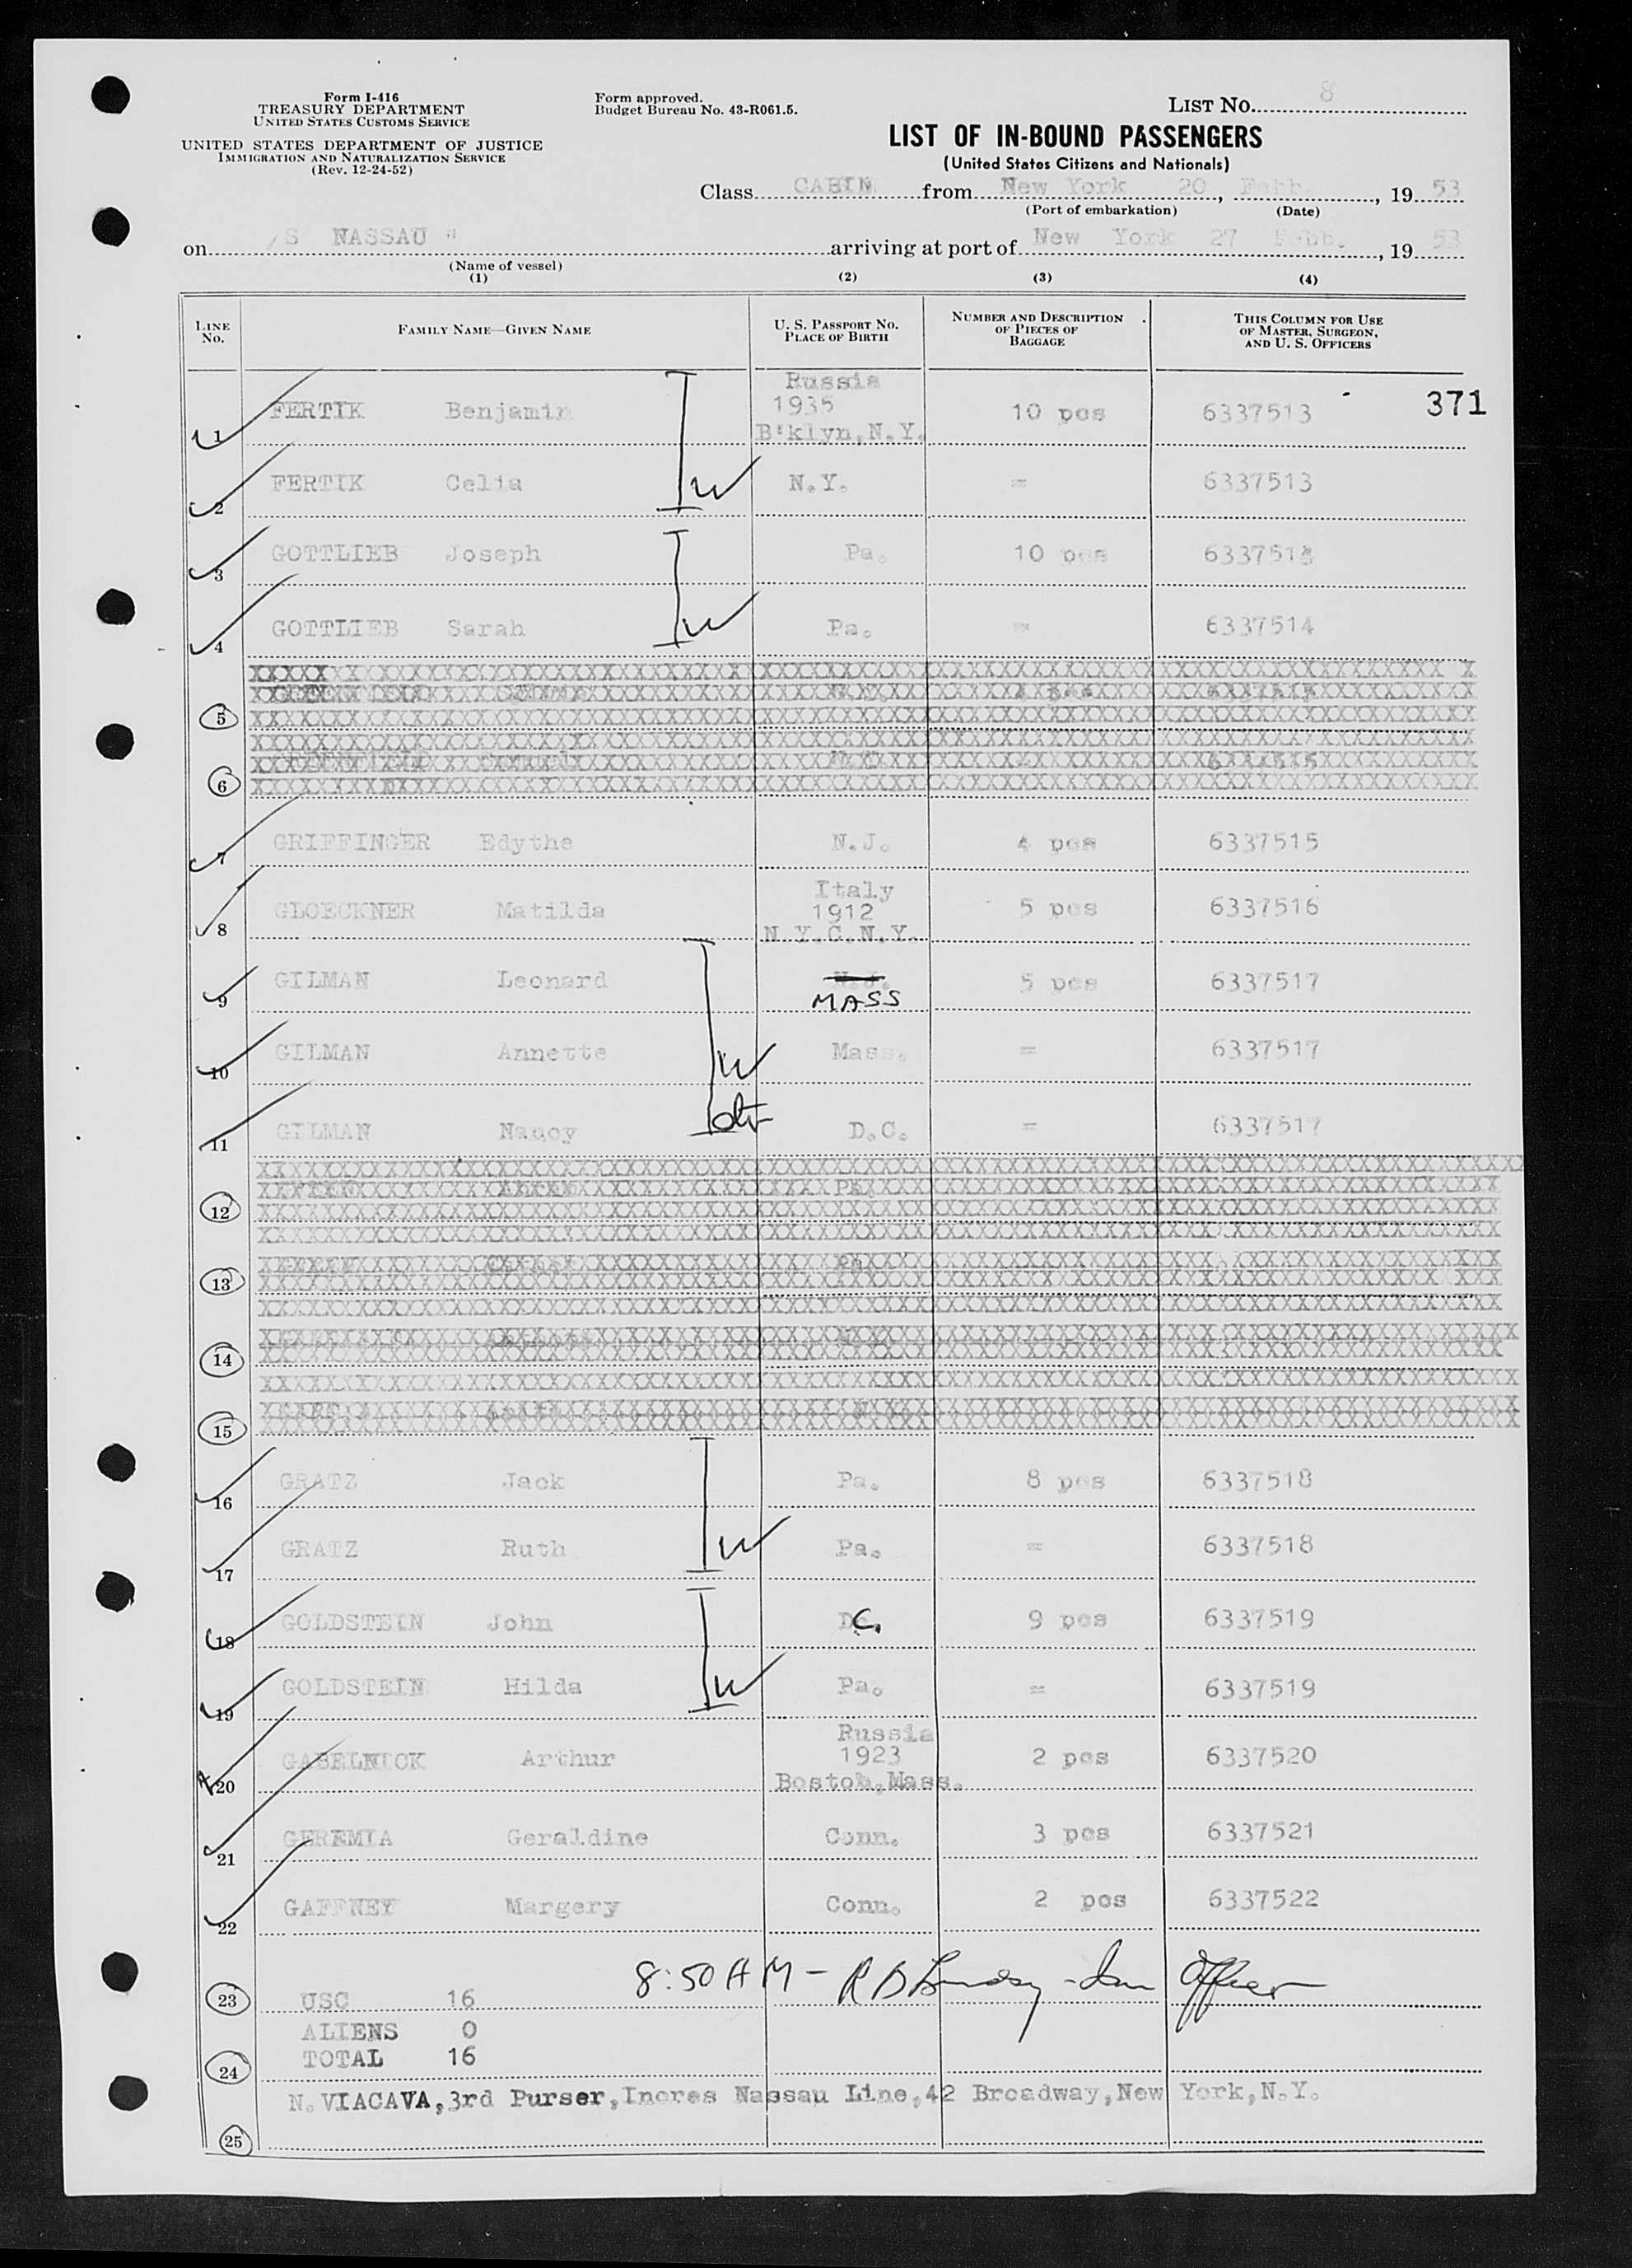 Form I-416
TREASURY DEPARTMENT
UNITED STATES CUSTOMS SERVICE
UNITED STATES DEPARTMENT OF JUSTICE
IMMIGRATION AND NATURALIZATION SERVICE
(Rev. 12-24-52)
Form approved.
Budget Bureau No. 43-R061.5.
LIST No. 8
LIST OF IN-BOUND PASSENGERS
(United States Citizens and Nationals)
Class CABIN from New York 20, Febb., 1953
(Port of embarkation) (Date)
on /S NASSAU " arriving at port of New York 27 Febb., 1953
(Name of vessel)
(1) (2) (3) (4)
LINE No. FAMILY NAME—GIVEN NAME U. S. PASSPORT NO. PLACE OF BIRTH NUMBER AND DESCRIPTION OF PIECES OF BAGGAGE THIS COLUMN FOR USE OF MASTER, SURGEON, AND U. S. OFFICERS
371
1 FERTIK Benjamin Russia 1935 B'klyn,N.Y. 10 pcs 6337513
2 FERTIK Celia W N.Y. = 6337513
3 GOTTLIEB Joseph Pa. 10 pcs 6337514
4 GOTTLIEB Sarah W Pa. = 6337514
5
6
7 GRIFFINGER Edythe N.J. 4 pcs 6337515
8 GLOECKNER Matilda Italy 1912 N.Y.C.N.Y. 5 pcs 6337516
9 GILMAN Leonard N.J. MASS 5 pcs 6337517
10 GILMAN Annette W Mass. = 6337517
11 GILMAN Nancy D.C. = 6337517
12
13
14
15
16 GRATZ Jack Pa. 8 pcs 6337518
17 GRATZ Ruth W Pa. = 6337518
18 GOLDSTEIN John D.C. 9 pcs 6337519
19 GOLDSTEIN Hilda W Pa. = 6337519
20 GABELNICK Arthur Russia 1923 Boston,Mass. 2 pcs 6337520
21 GEREMIA Geraldine Conn. 3 pcs 6337521
22 GAFFNEY Margery Conn. 2 pcs 6337522
8:50 AM - Officer
23 USC 16
ALIENS 0
24 TOTAL 16
N. VIACAVA,3rd Purser,Incres Nassau Line,42 Broadway,New York,N.Y.
25